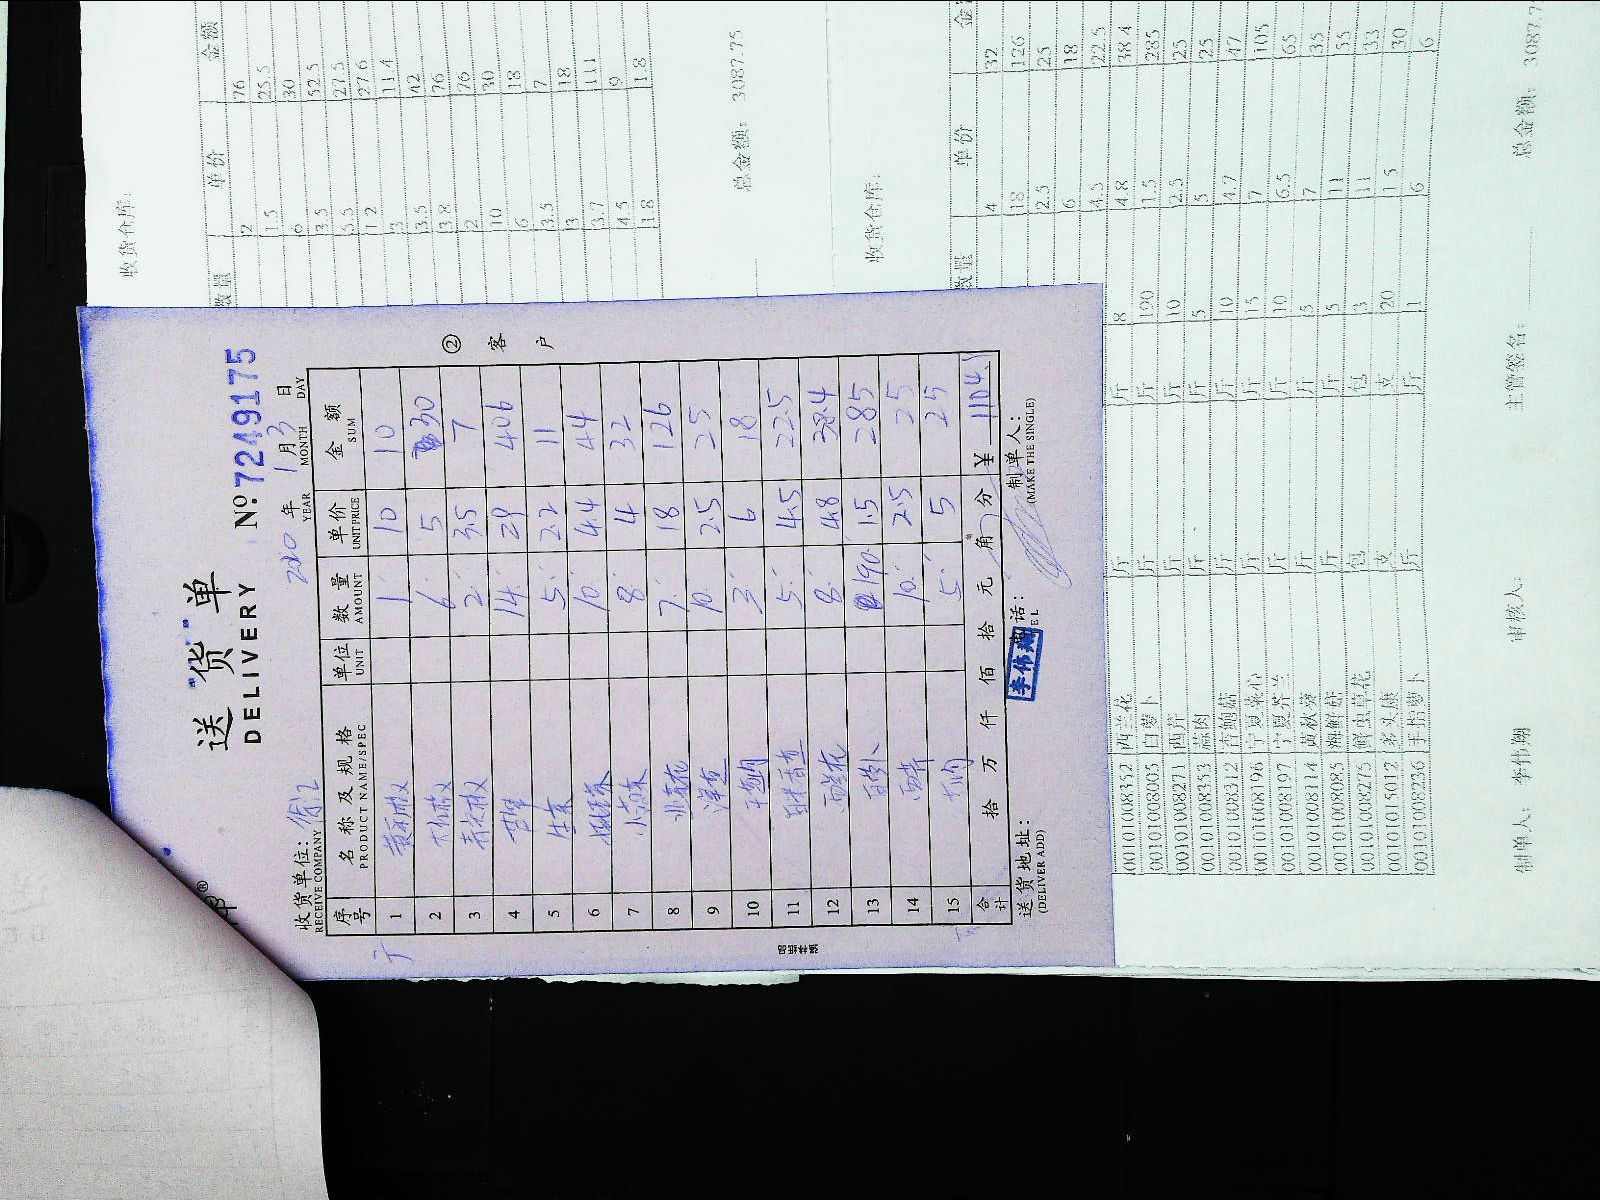 送货单
DELIVERY
No. 7249175
收货单位：
RECEIVE COMPANY
2020 年 1 月 3 日
YEAR MONTH DAY
序号 名称及规格 单位 数量 单价 金额
PRODUCT NAME/SPEC UNIT AMOUNT UNIT PRICE SUM
1 黄椒 1 10 10
2 6 5 30
3 2 3.5 7
4 14 29 406
5 生菜 5 2.2 11
6 10 4.4 44
7 8 4 32
8 7 18 126
9 10 2.5 25
10 3 6 18
11 5 4.5 22.5
12 西兰花 8 4.8 38.4
13 白萝卜 190 1.5 285
14 西芹 10 2.5 25
15 5 5 25
合计 拾 万 仟 佰 拾 元 角 分 ¥ 1104.
送货地址：
(DELIVER ADD)
制单人：
(MAKE THE SINGLE)
李伟翔
② 客户
收货仓库：
数量 单价 金额
2 76
1.5 25.5
6 30
3.5 52.5
5.5 27.5
1.2 27.6
3 114
3.5 42
3.8 76
2 76
10 30
6 18
3.5 7
3 18
3.7 111
4.5 9
1.8 1.8
总金额： 3087.75
收货仓库：
数量 单价 金额
4 32
18 126
2.5 25
6 18
4.5 22.5
00101008352 西兰花 斤 斤 8 4.8 38.4
00101008005 白萝卜 斤 斤 190 1.5 285
00101008271 西芹 斤 斤 10 2.5 25
00101008353 蒜肉 斤 斤 5 5 25
00101008312 杏鲍菇 斤 斤 10 4.7 47
00101008196 宁夏菜心 斤 斤 15 7 105
00101008197 宁夏芥兰 斤 斤 10 6.5 65
00101008114 黄秋葵 斤 斤 5 7 35
00101008085 海鲜菇 斤 斤 5 11 55
00101008275 鲜虫草花 包 包 3 11 33
00101015012 支 支 20 1.5 30
00101008236 手指萝卜 斤 斤 1 6 6
制单人： 李伟翔 审核人： 主管签名： 总金额： 3087.7